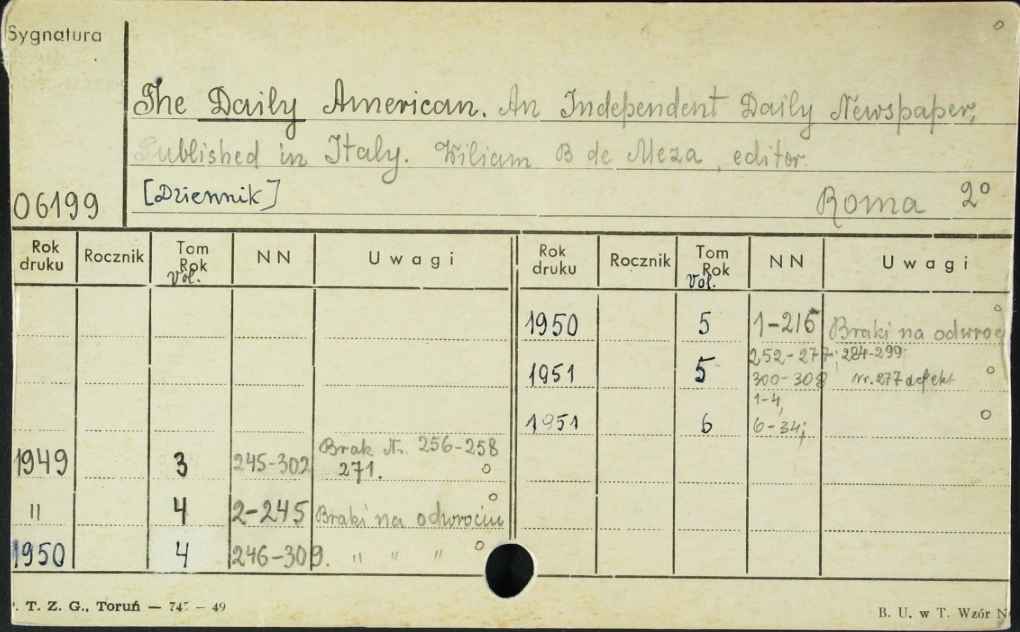 Sygnatura
The Daily American. An Independent Daily Newspaper,
Published in Italy. Wiliam B de Meza, editor.
[Dziennik]
06199
Roma 2°
Rok druku Rocznik Tom Rok Vol. NN Uwagi
1949 3 245-302 Brak Nr. 256-258 271.
" 4 2-245 Braki na odwrociu
1950 4 246-309. " " "
Rok druku Rocznik Tom Rok Vol. NN Uwagi
1950 5 1-216 Braki na odwroc
1951 5 252-277; 284-299
300-308 Nr. 277 defekt
1951 6 1-4,
6-34;
. T. Z. G., Toruń — 747 — 49
B. U. w T. Wzór N